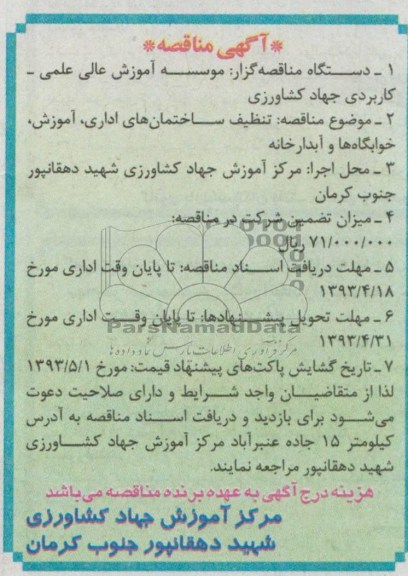 *آگهی مناقصه*
۱ ـ دستگاه مناقصه‌گزار: موسسه آموزش عالی علمی ـ
کاربردی جهاد کشاورزی
۲ ـ موضوع مناقصه: تنظیف ساختمان‌های اداری، آموزش،
خوابگاه‌ها و آبدارخانه
۳ ـ محل اجرا: مرکز آموزش جهاد کشاورزی شهید دهقانپور
جنوب کرمان
۴ ـ میزان تضمین شرکت در مناقصه:
۷۱/۰۰۰/۰۰۰ ریال
۵ ـ مهلت دریافت اسناد مناقصه: تا پایان وقت اداری مورخ
۱۳۹۳/۴/۱۸
۶ ـ مهلت تحویل پیشنهادها: تا پایان وقت اداری مورخ
۱۳۹۳/۴/۳۱
ParsNamadData
مرکز فرآوری اطلاعات پارس نماد داده‌ها
۷ ـ تاریخ گشایش پاکت‌های پیشنهاد قیمت: مورخ ۱۳۹۳/۵/۱
لذا از متقاضیان واجد شرایط و دارای صلاحیت دعوت
می‌شود برای بازدید و دریافت اسناد مناقصه به آدرس
کیلومتر ۱۵ جاده عنبرآباد مرکز آموزش جهاد کشاورزی
شهید دهقانپور مراجعه نمایند.
هزینه درج آگهی به عهده برنده مناقصه می‌باشد
مرکز آموزش جهاد کشاورزی
شهید دهقانپور جنوب کرمان